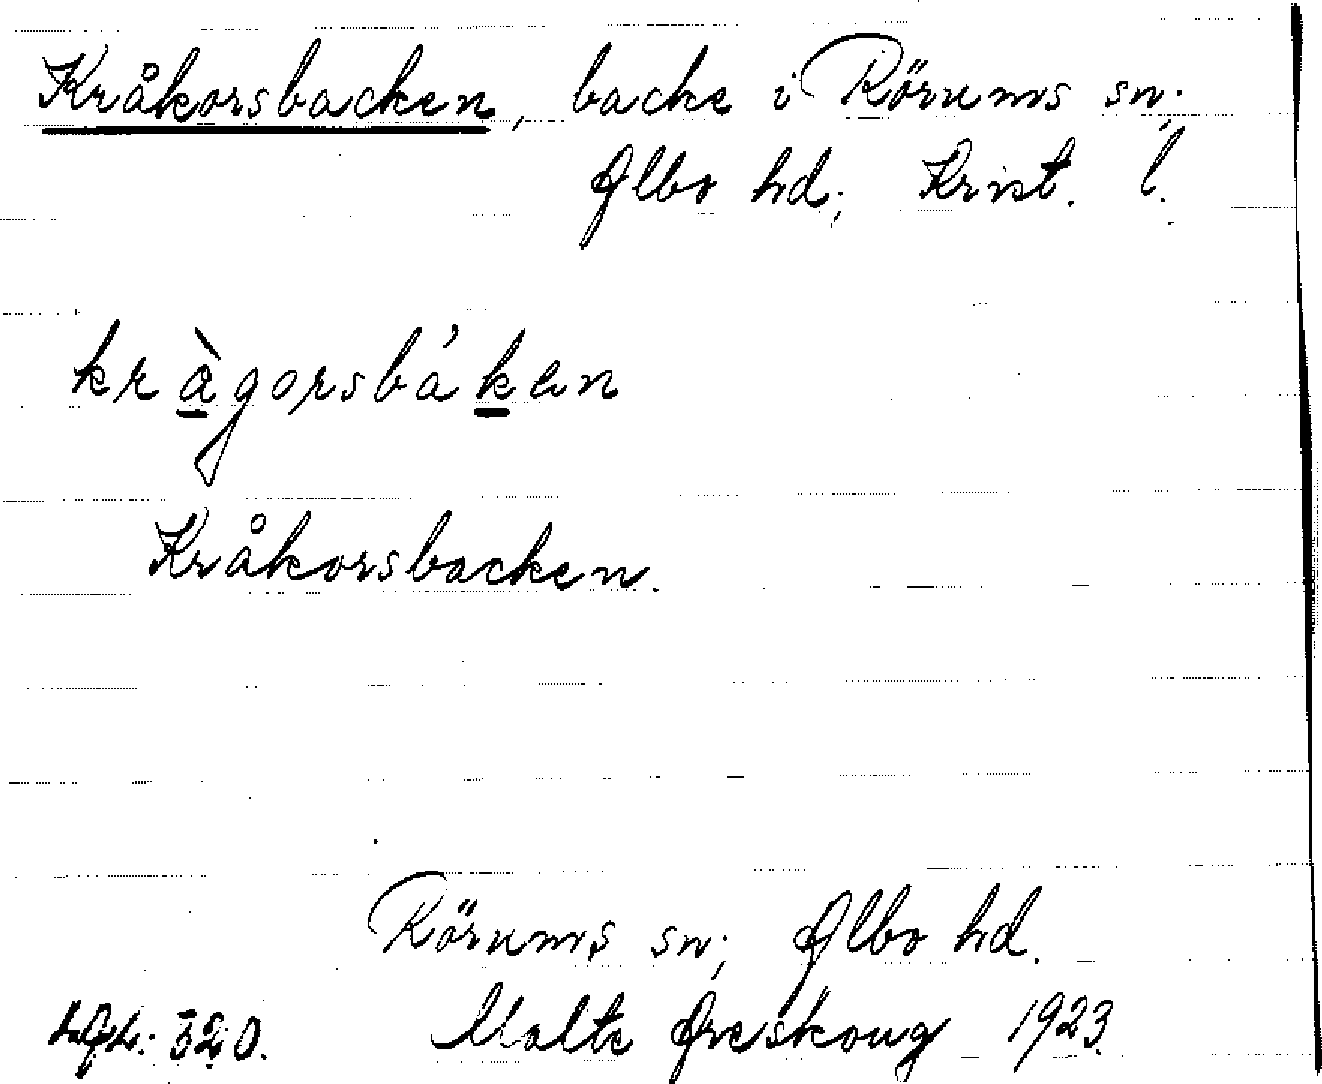 Kråkorsbacken, backe i Rörums sn;
Albo hd; Krist. l.
kràgorsbáken
Kråkorsbacken.
Rörums sn; Albo hd.
Malte Areskoug 1923.